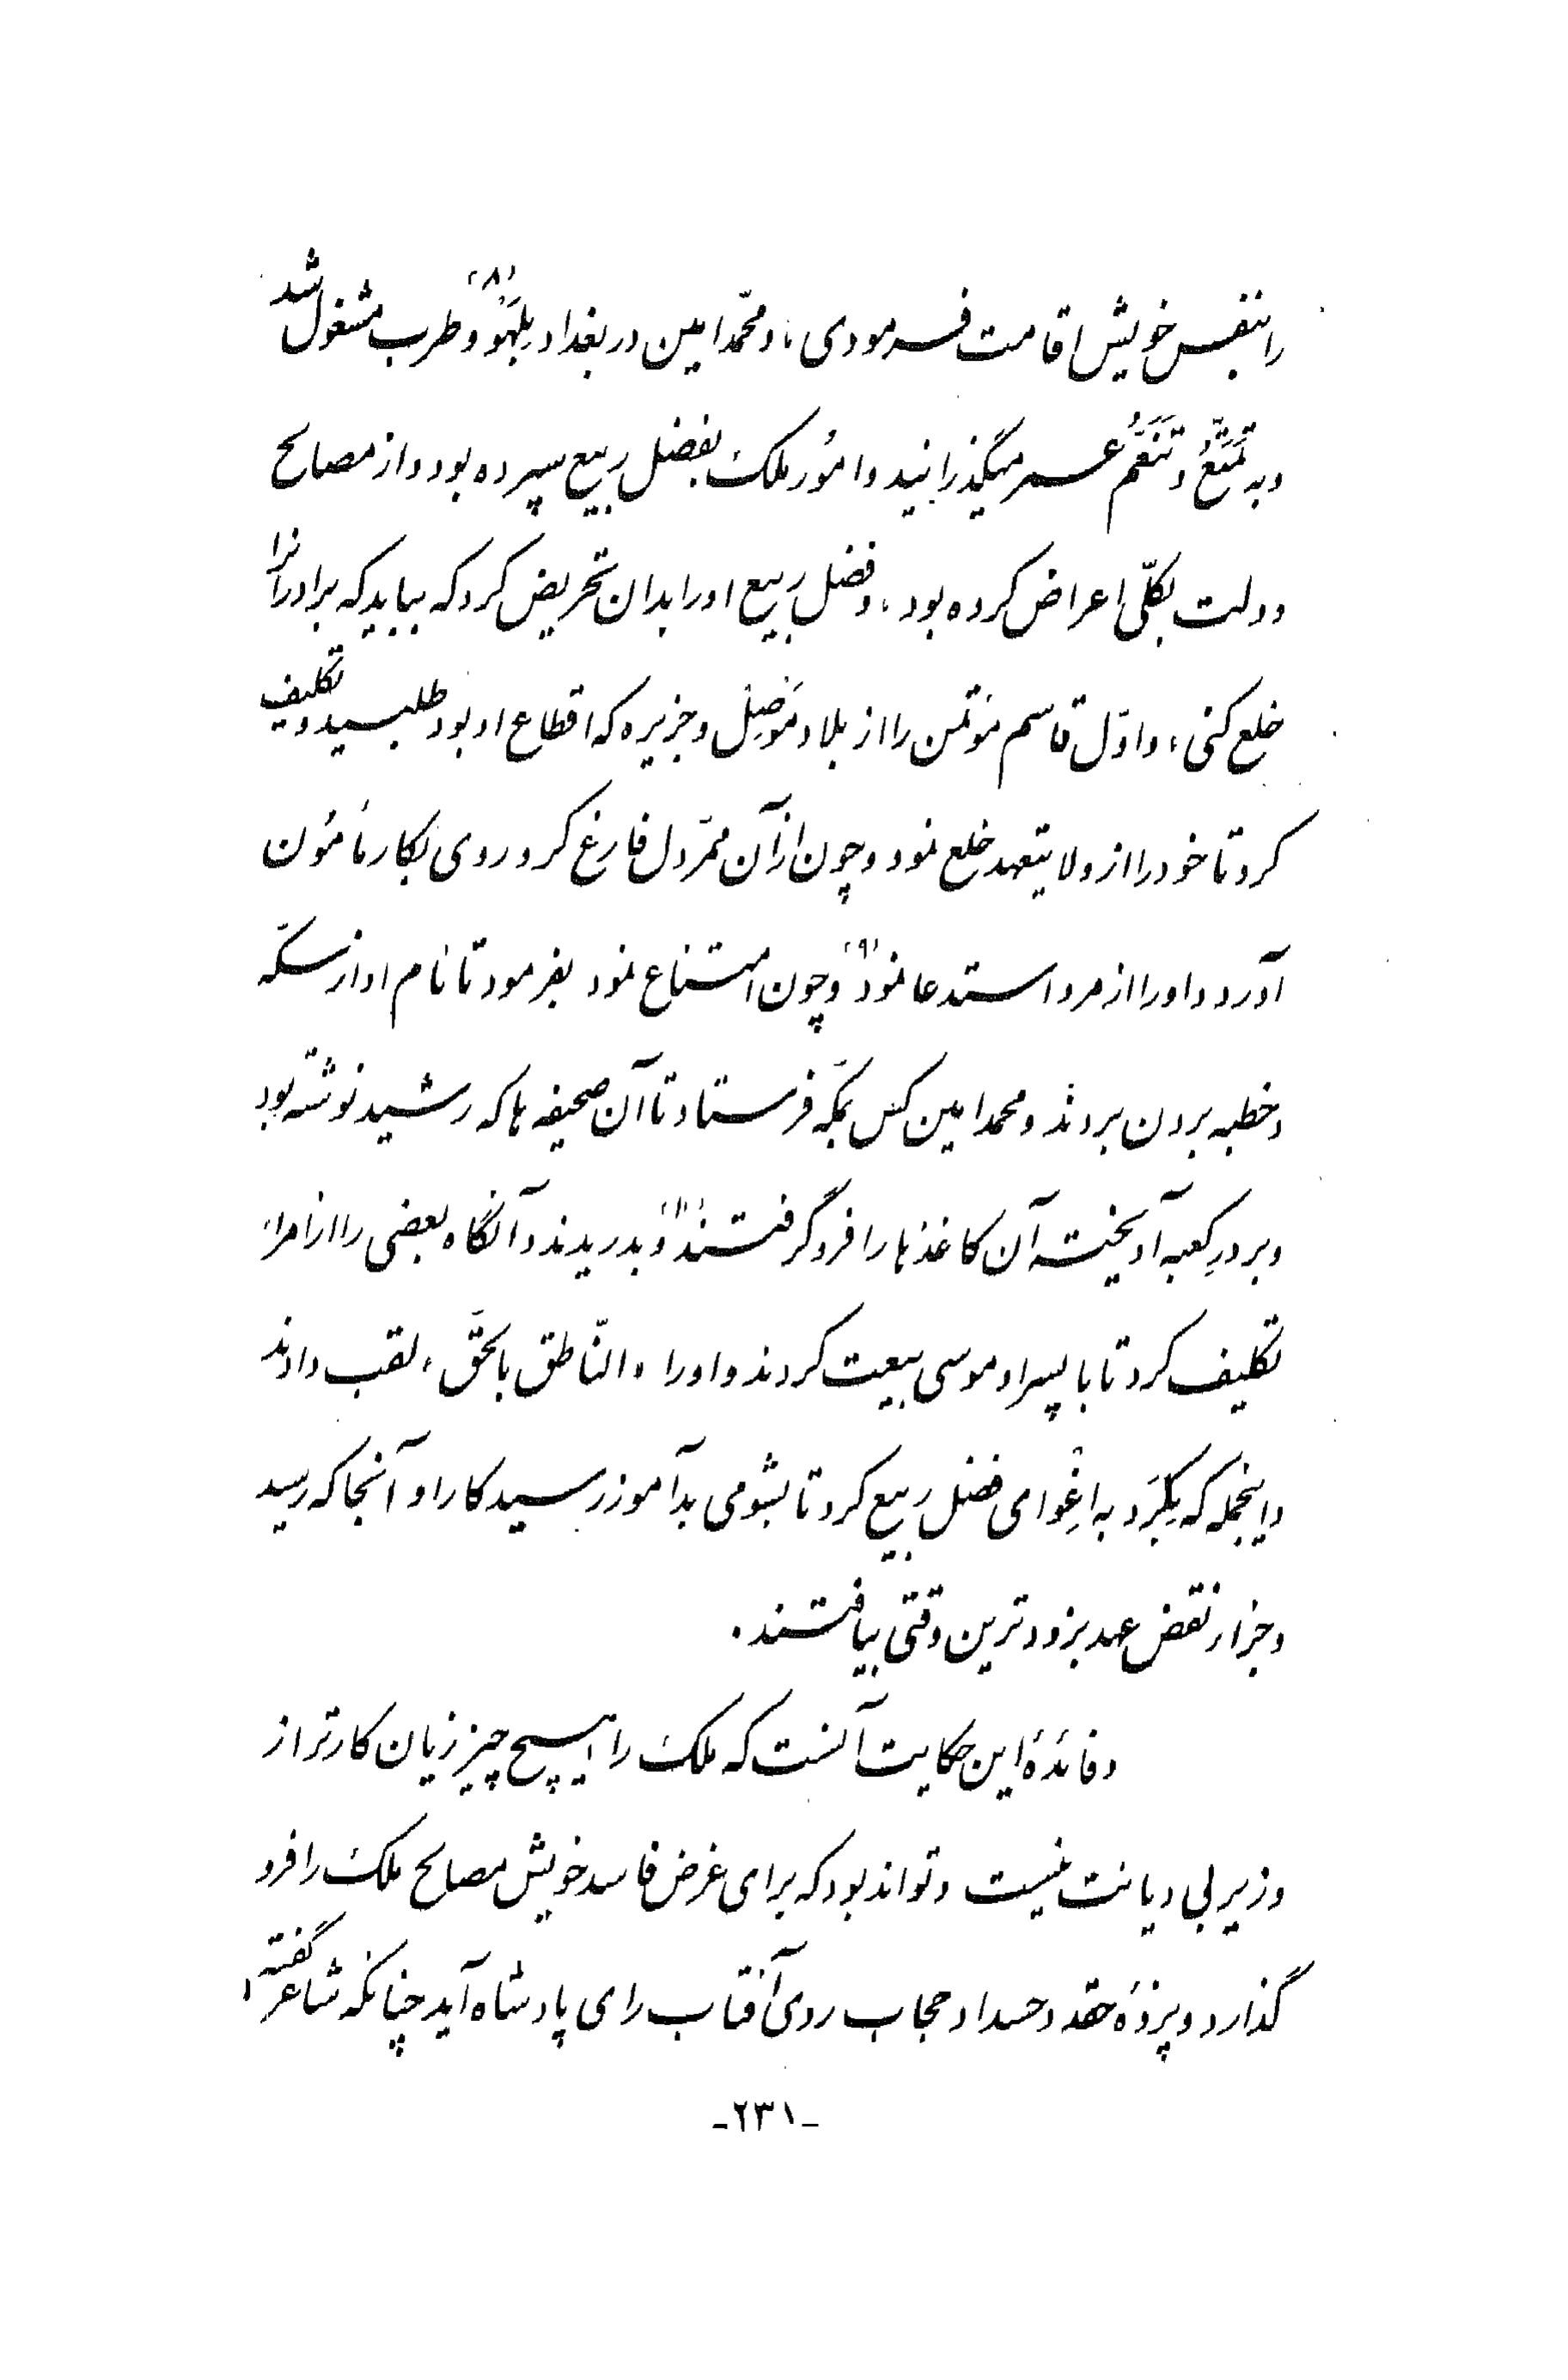 را بنفس خویش اقامت فرمودی، و محمّد امین در بغداد بلَهْو (۸) و طرب مشغول شد
و به تَمَتُّعْ و تَنَعُّم عمر میگذرانید و امُور ملک بفضل ربیع سپرده بود و از مصالح
دولت بکلّی اعراض کرده بود، و فضل ربیع او را بدان تحریض کرد که بباید که برادرانرا
خلع کنی، و اوّل قاسم مؤتمن را از بلاد مَوْصِل و جزیره که اقطاع او بود طلبید و تکلیف
کرد تا خود را از ولایتعهد خلع نمود و چون از آن ممرّ دل فارغ کرد روی بکار مأمُون
آورد و او را از مرو استدعا نمود (۹) و چون امتناع نمود بفرمود تا نام او از سکّه
و خطبه بردن بردند و محمد امین کس بمکّه فرستاد تا آن صحیفه ها که رشید نوشته بود
و بر درِ کعبه آویخته آن کاغذها را فرو گرفتند و بدریدند و آنگاه بعضی را از امراء
تکلیف کرد تا با پسر او موسی بیعت کردند و او را «النّاطق بالحَقّ» لقب دادند
و اینجمله که بِکَرد به اِغْوای فضل ربیع کرد تا بشومی بدآموز رسید کار او آنجا که رسید
و جزاء نقض عهد بزودترین وقتی بیافتند.
و فائدۀ این حکایت آنست که ملک را هیچ چیز زیان کارتر از
وزیر بی دیانت نیست و تواند بود که برای غرض فاسد خویش مصالح ملک را فرو
گذارد و پردۀ حقد و حسد او حجاب روی آفتاب رای پادشاه آید چنانکه شاعر گفته:
-۲۳۱-